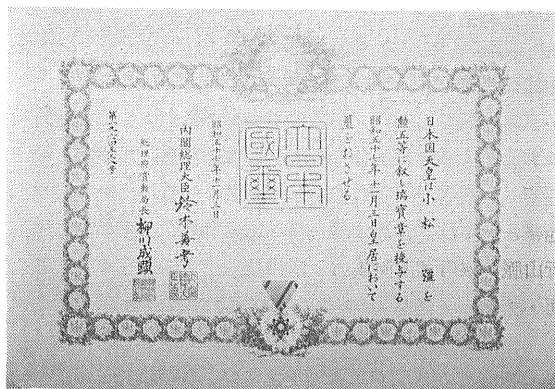 日本国天皇は小松 強を
勲五等に叙し瑞寳章を授与する
昭和五十七年十一月三日皇居において
璽をおさせる
大日本國璽
昭和五十七年十一月三日
内閣総理大臣 鈴木善幸
総理府賞勲局長 柳川成顕